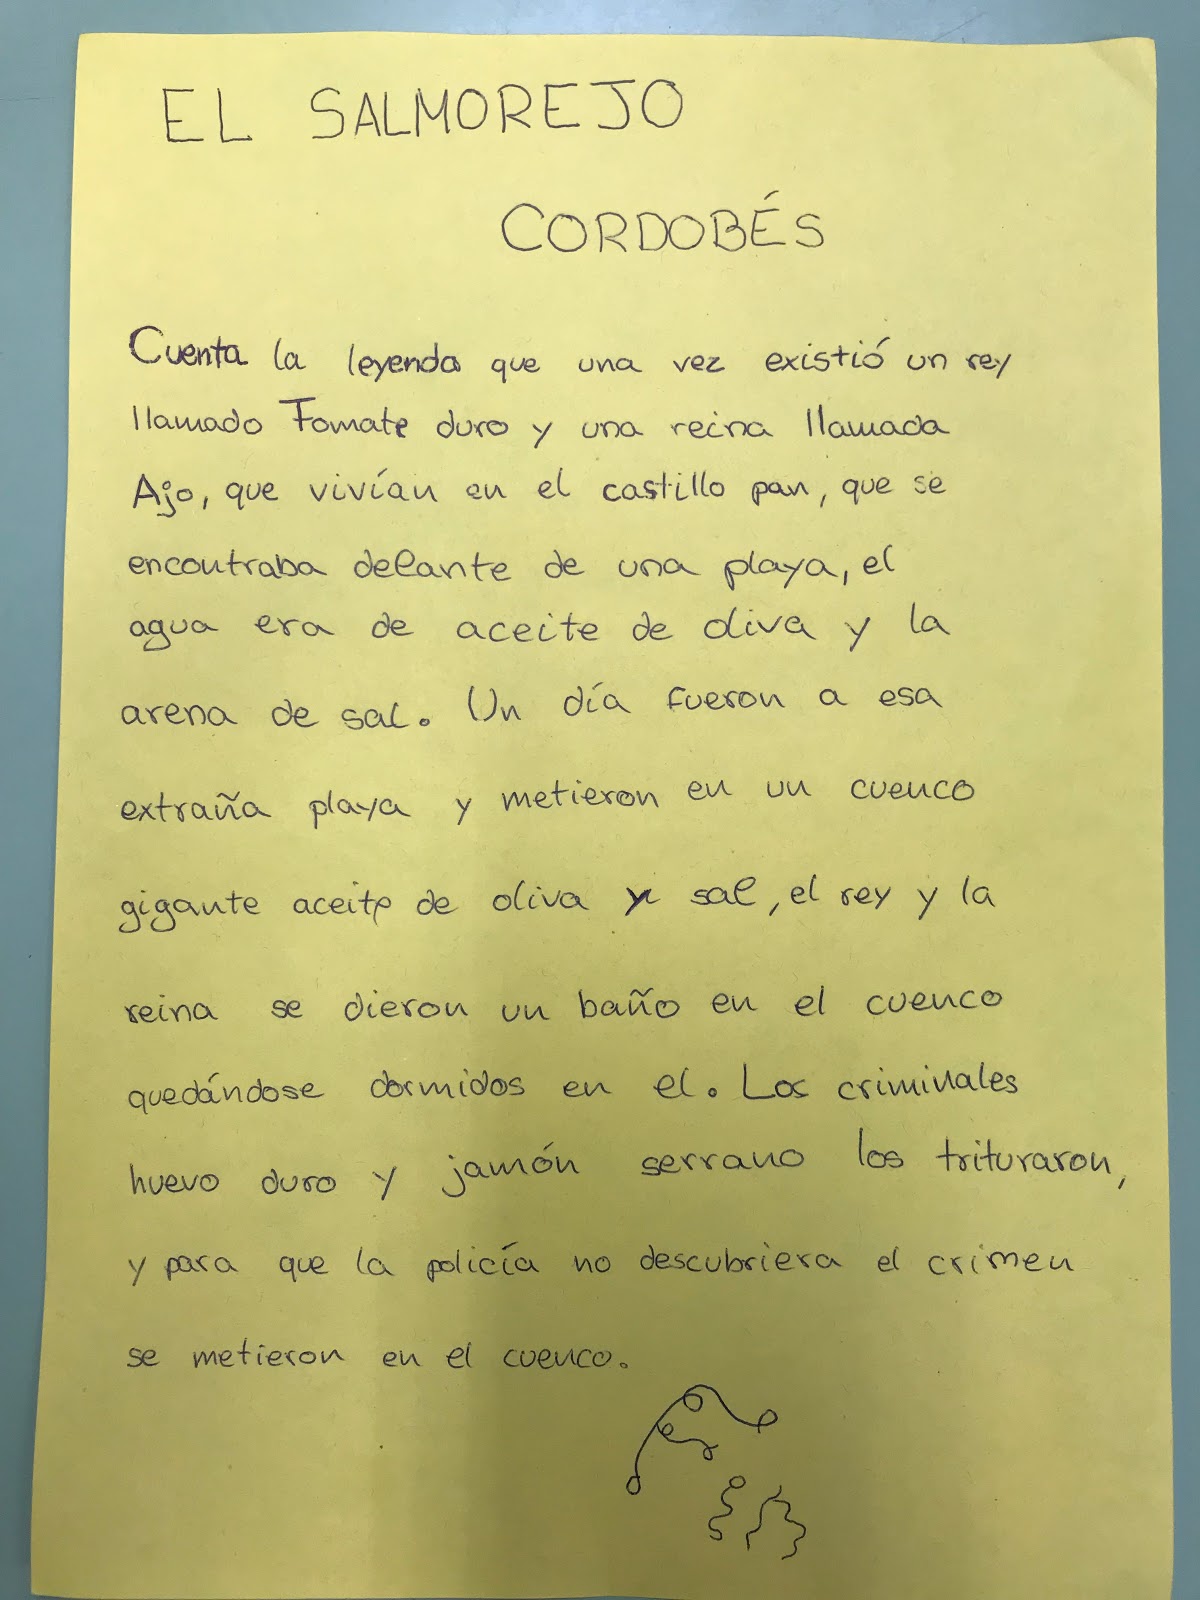 EL SALMOREJO
CORDOBÉS
Cuenta la leyenda que una vez existió un rey
llamado Tomate duro y una reina llamada
Ajo, que vivían en el castillo pan, que se
encontraba delante de una playa, el
agua era de aceite de oliva y la
arena de sal. Un día fueron a esa
extraña playa y metieron en un cuenco
gigante aceite de oliva y sal, el rey y la
reina se dieron un baño en el cuenco
quedándose dormidos en el. Los criminales
huevo duro y jamón serrano los trituraron,
y para que la policía no descubriera el crimen
se metieron en el cuenco.